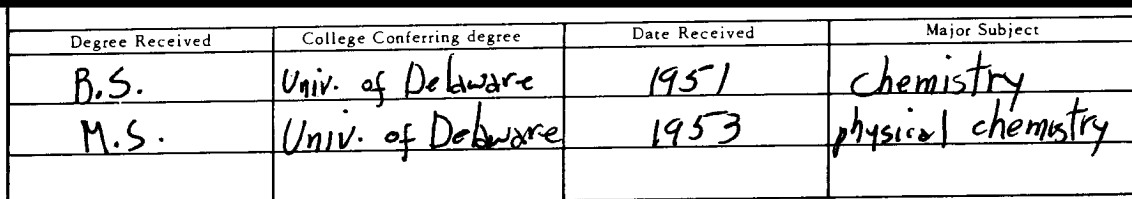 Degree Received College Conferring degree Date Received Major Subject
B.S. Univ. of Delaware 1951 chemistry
M.S. Univ. of Delaware 1953 physical chemistry